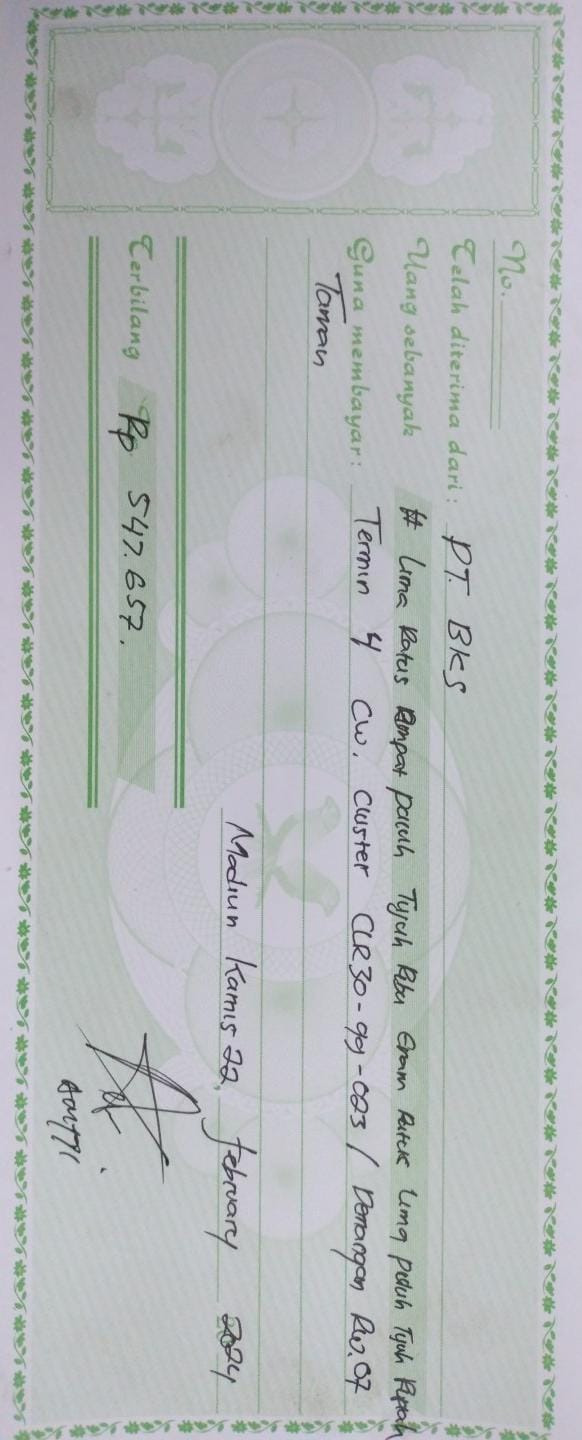 No.
Telah diterima dari : PT. BKS
Uang sebanyak # Lima Ratus Empat puluh Tujuh Ribu Enam Ratus Lima puluh Tujuh Rupiah
Guna membayar: Termin 4 CW. Cluster CLR30-99-023 / Demangan Rw. 07
Taman
Madiun Kamis 22, february 2024
Terbilang Rp 547.657.